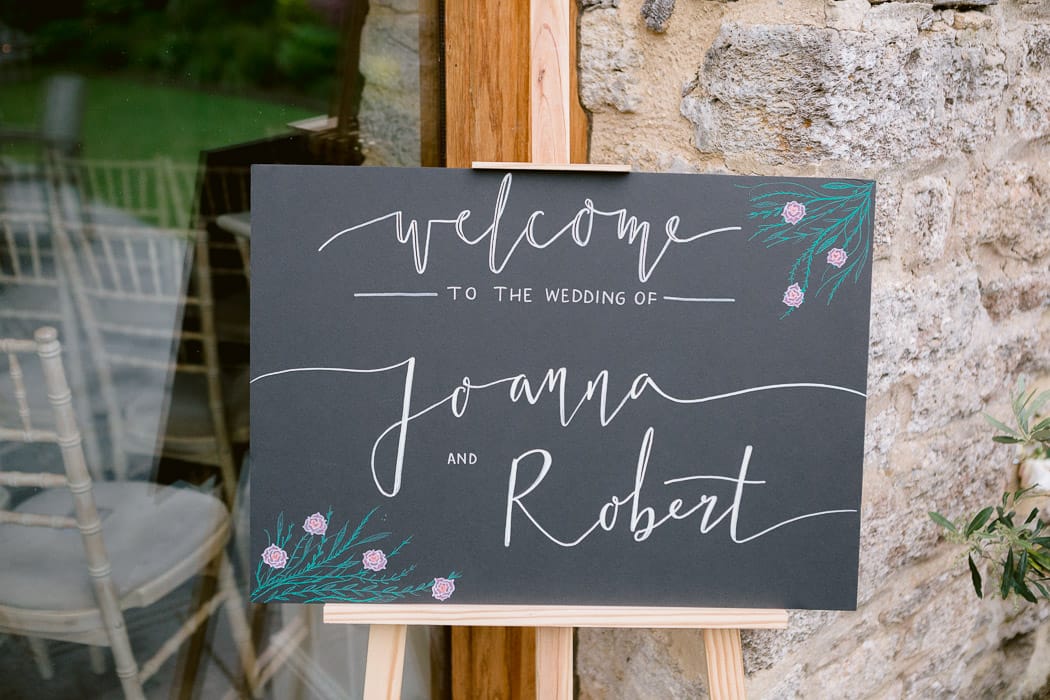 welcome
TO THE WEDDING OF
Joanna
AND
Robert